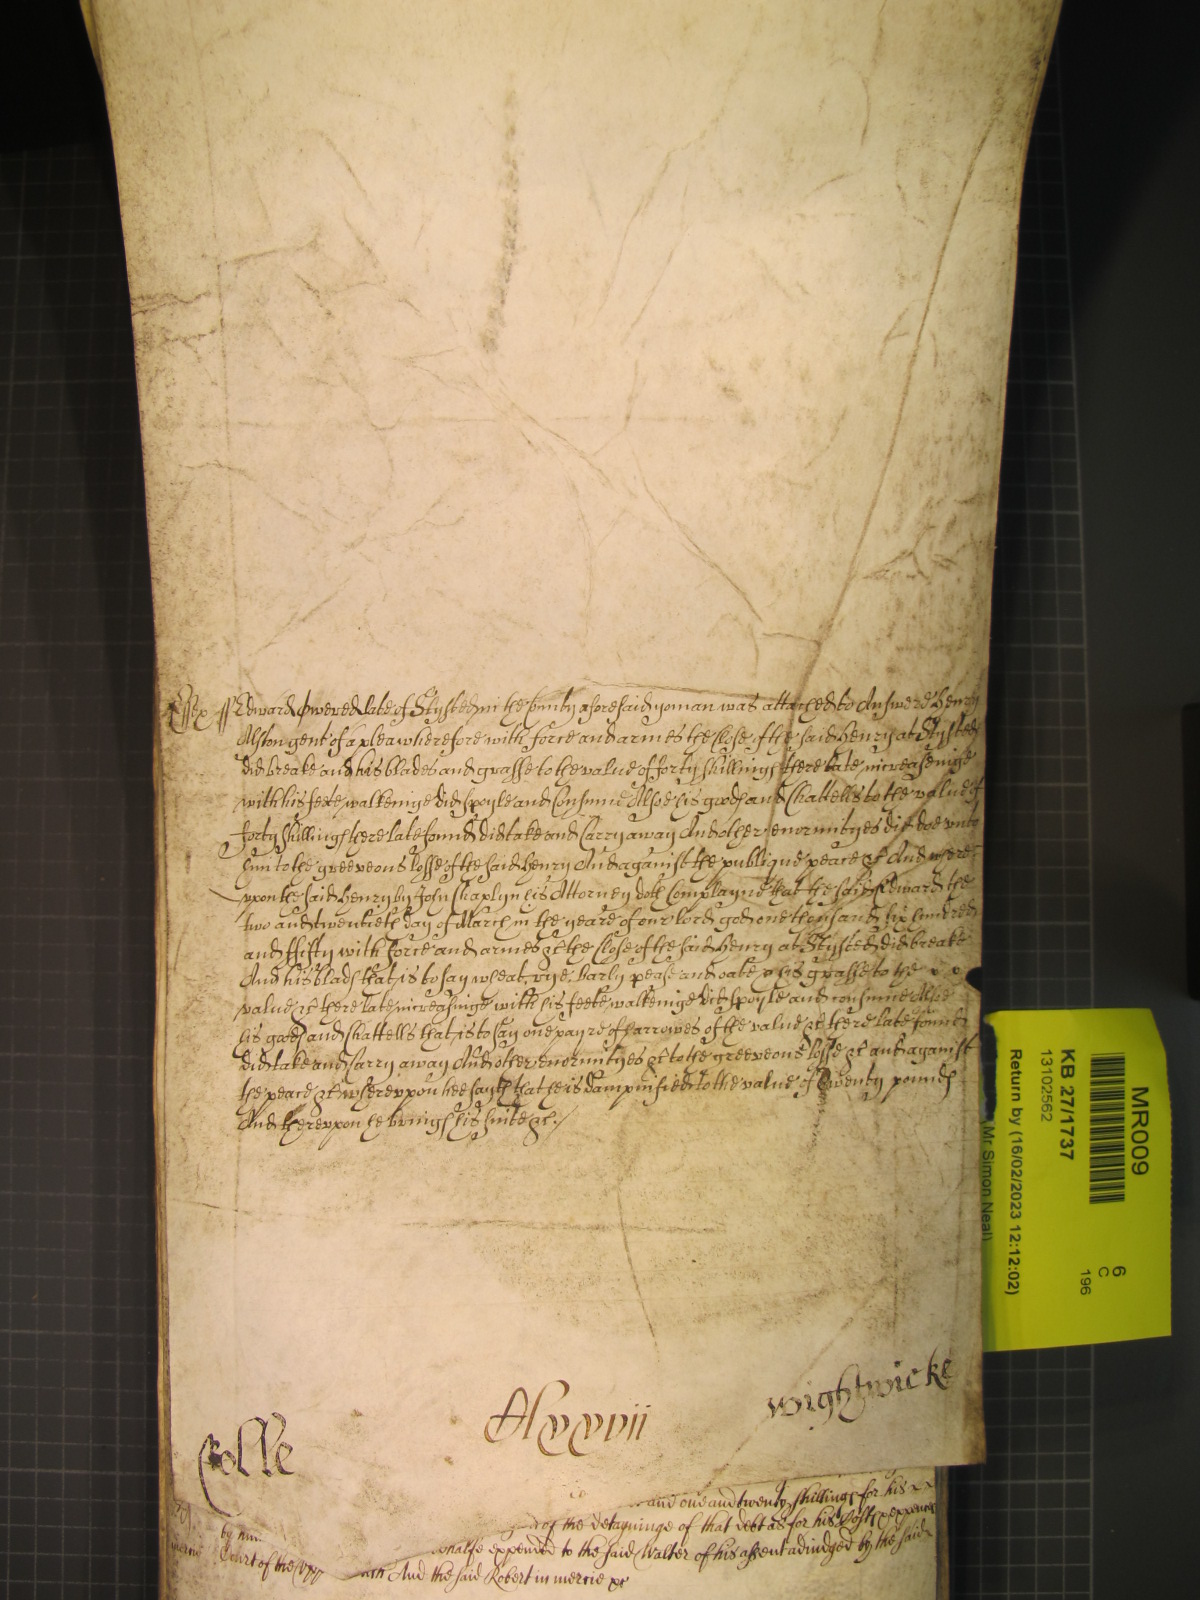 Essex ss Edward Owered late of Stysted in the County aforesaid yoman was attached to Answere Henry
Alston gent of a plea wherefore with force and armes the Close of the said Henry at Stysted
did breake and his blades and grasse to the value of forty shillings there late increaseinge
with his feete walkeinge did spoyle and Consume Alsoe his goods and Chattells to the value of
forty shillings there late found did take and Carry away And other enormityes did doe unto
him to the greeveous losse of the said Henry And against the publique peace &c And where
vpon the said Henry by John Chaplyn his Attorney doth Complayne that the said Edward the
two and twentieth day of March in the yeare of our lord god one thousand six hundred
and ffifty with force and armes &c the Close of the said Henry at Stysted did breake
And his blads that is to say wheat, rye, barly pease and oates & his grasse to the
value &c there late increasinge with his feete walkeinge did spoyle and consume Alsoe
his goods and Chattells that is to say one payre of harrowes of the value &c there late found
did take and Carry away And other enormityes &c to the greeveous losse &c and against
the peace &c wherevpon hee sayth that he is dampnified to the value of Twenty pounds
And therevpon he brings his suite &c.
Wightwicke
Rolle
and one and twenty shillings for his
of the detayninge of that debt as for his Costs & expences
by him
Court of the Vpp
onalfe expended to the said Walter of his assent adiudged by the said
And the said Robert in mercie &c
MR009
6
C
196
KB 27/1737
13102562
Return by (16/02/2023 12:12:02)
Mr Simon Neal)